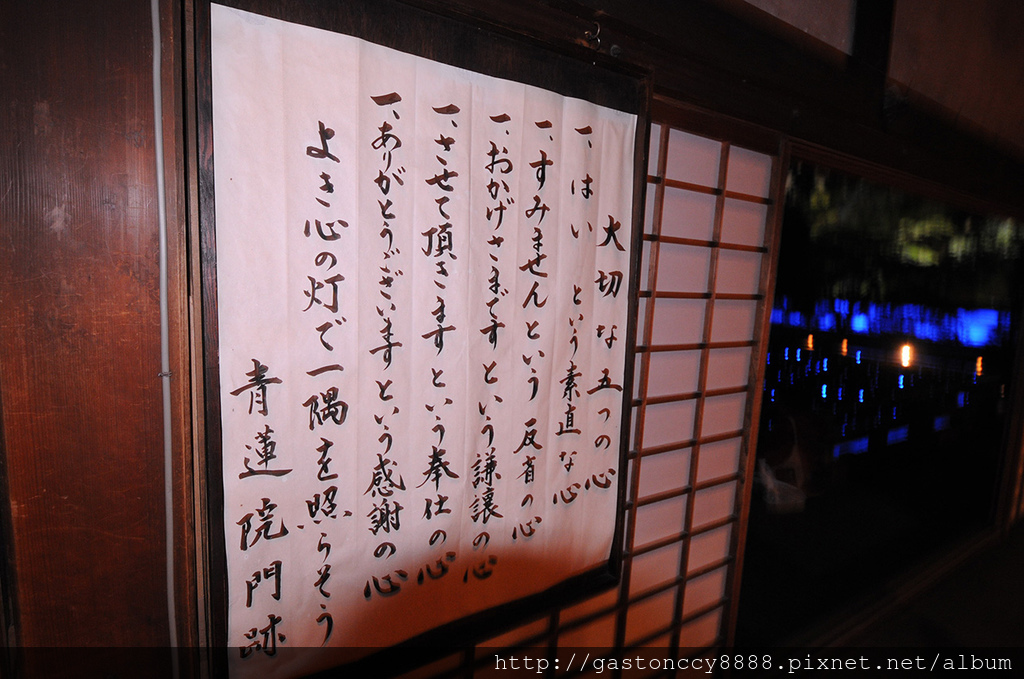 大切な五つの心
一、はい という素直な心
一、すみませんという 反省の心
一、おかげさまです という謙譲の心
一、させて頂きます という奉仕の心
一、ありがとうございます という感謝の心
よき心の灯で一隅を照らそう
青蓮院門跡
http://gastonccy8888.pixnet.net/album